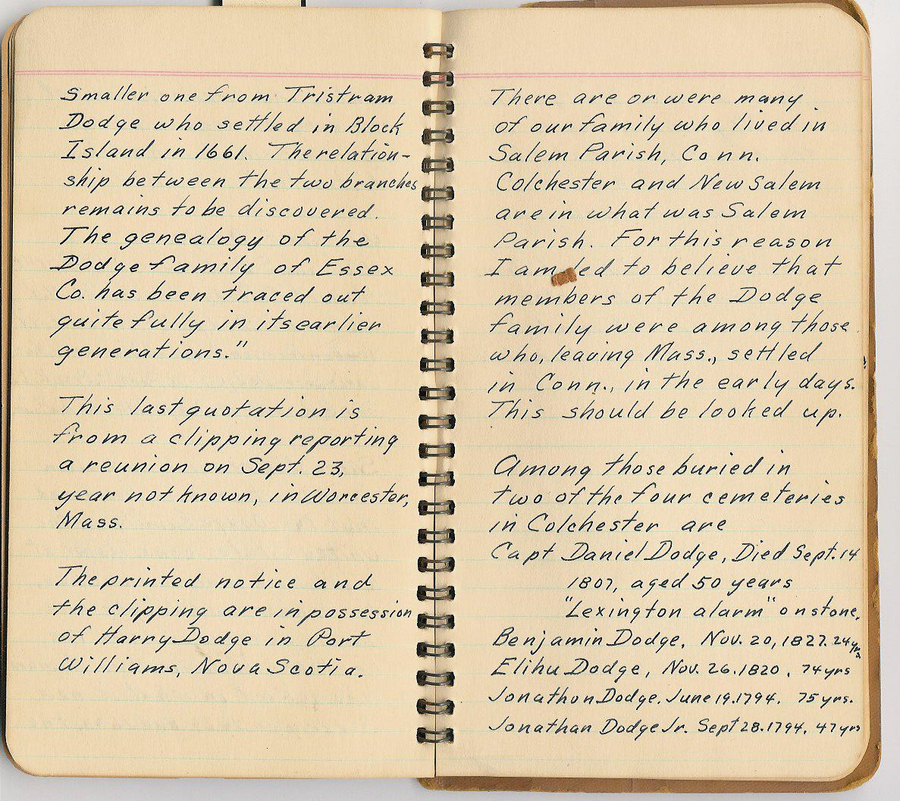 Smaller one from Tristram
Dodge who settled in Block
Island in 1661. The relation-
ship between the two branches
remains to be discovered.
The genealogy of the
Dodge family of Essex
Co. has been traced out
quite fully in its earlier
generations."
This last quotation is
from a clipping reporting
a reunion on Sept. 23,
year not known, in Worcester,
Mass.
The printed notice and
the clipping are in possession
of Harry Dodge in Port
Williams, Nova Scotia.
There are or were many
of our family who lived in
Salem Parish, Conn.
Colchester and New Salem
are in what was Salem
Parish. For this reason
I am led to believe that
members of the Dodge
family were among those
who, leaving Mass., settled
in Conn., in the early days.
This should be looked up.
Among those buried in
two of the four cemeteries
in Colchester are
Capt Daniel Dodge, Died Sept. 14
1807, aged 50 years
"Lexington alarm" on stone.
Benjamin Dodge, Nov. 20, 1827. 24 yrs
Elihu Dodge, Nov. 26. 1820. 74 yrs
Jonathon Dodge. June 19. 1794. 75 yrs.
Jonathan Dodge Jr. Sept 28. 1794. 47 yrs